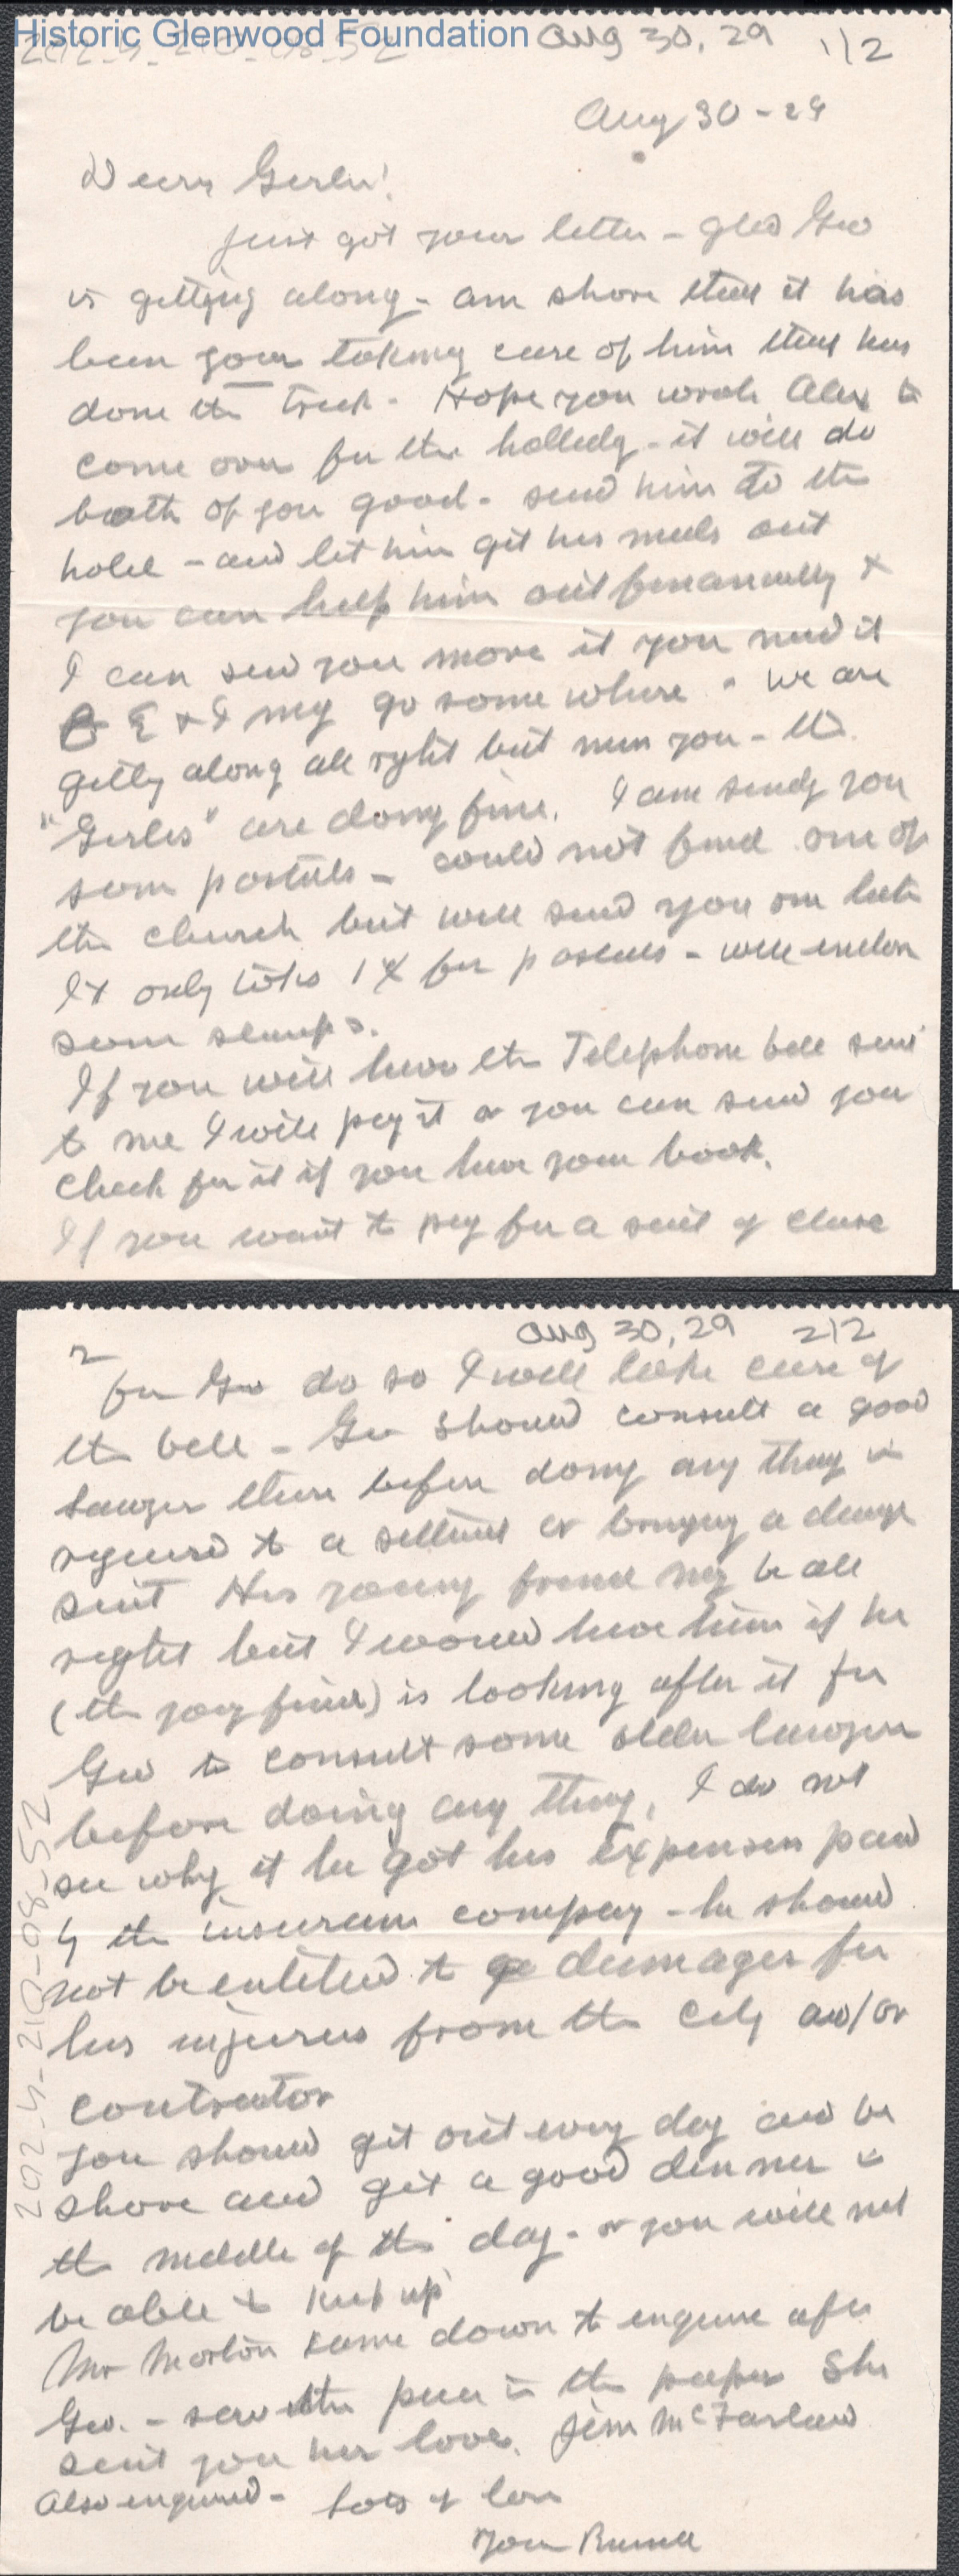 Historic Glenwood Foundation Aug 30, 29 1/2
202-4-210-08-52
Aug 30 - 29
Dear Gerlie!
Just got your letter - glad Geo
is getting along - am shore that it has
been your takeing care of him that has
done the trick. Hope you wrote Alex to
come over for the holledy - it will do
boath of you good - send him to the
hotel - and let him git his meals out
you can help him out financially &
I can send you more if you need it
E & I my go some where - we are
getting along all right but miss you - the
"Gerlies" are doing fine. I am sendg you
som postals - could not find one of
the church but will send you one late
It only takes 1¢ for postals - will enclose
som stamps.
If you will have the Telephone bill sent
to me I will pay it or you can send you
check for it if you have your book.
If you want to pay for a suit of close
2
Aug 30, 29 2/2
for Geo do so I will take care of
the bill - Geo should consult a good
lawyer there before doing any thing in
regard to a settlment or bringing a damage
suit His young friend my be all
right but I would have him if he
(the yong friend) is looking after it for
Geo to consult some older lawyer
before doing any thing, I do not
see why if he got his expenses paid
by the insurance company - he should
not be entitled to damages for
his injuries from the City and/or
contractor
you should get out every day and be
shore and get a good dinner in
the middle of the day - or you will not
be able to keep up
Mr Morton came down to enquire after
Geo. - saw the piece in the paper She
sent you her love. Jim McFarland
Also enquired - Lots of love
Your Russell
202-4-210-08-52